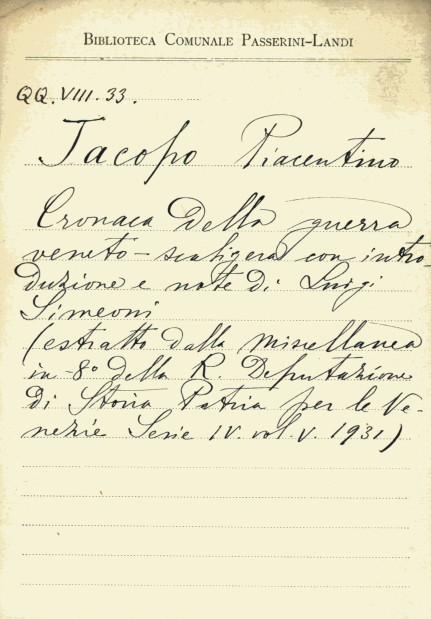 BIBLIOTECA COMUNALE PASSERINI-LANDI
QQ. VIII. 33.
Jacopo Piacentino
Cronaca della guerra
veneto-scaligera con intro-
duzione e note di Luigi
Simeoni
(estratto dalla miscellanea
in-8° della R. Deputazione
di Storia Patria per le Ve-
nezie Serie IV. vol. V. 1931)